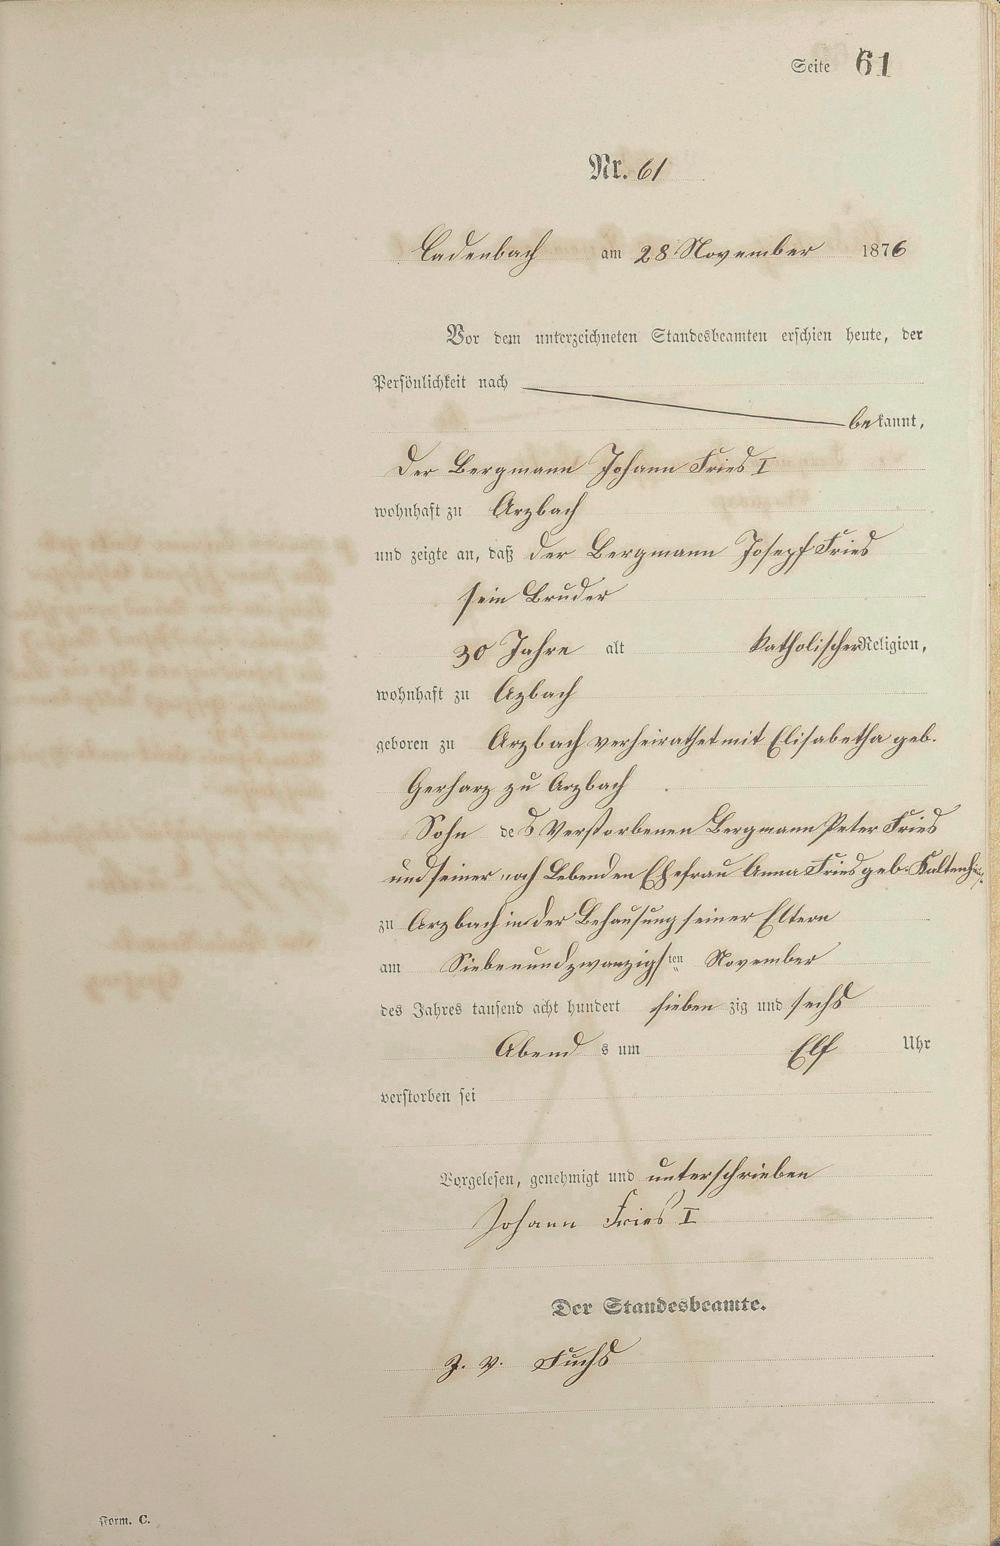 Seite 61
Nr. 61
Cadenbach am 28 November 1876
Vor dem unterzeichneten Standesbeamten erschien heute, der
Persönlichkeit nach
bekannt,
Der Bergmann Johann Fries I
wohnhaft zu Arzbach
und zeigte an, daß der Bergmann Josepf Fries
sein Bruder
30 Jahre alt katholischer Religion,
wohnhaft zu Azbach
geboren zu Arzbach verheirathet mit Elisabetha geb.
Gerharz zu Arzbach
Sohn des Verstorbenen Bergmann Peter Fries
und seiner noch Lebenden Ehefrau Anna Fries geb.
zu Arzbach in der Behausung seiner Eltern
am Siebenundzwanzigsten November
des Jahres tausend acht hundert siebenzig und sechs
Abends um Elf Uhr
verstorben sei
Vorgelesen, genehmigt und unterschrieben
Johann Fries I
Der Standesbeamte.
z. v. Fuchs
Form. C.